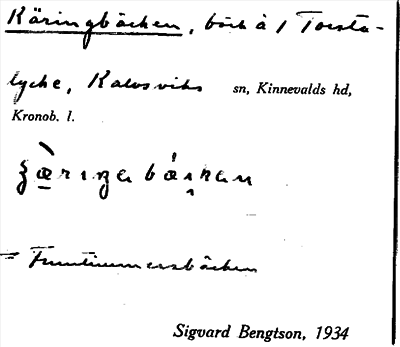 Käringbäcken, bäck å / Torsta-
lycke, Kalvsviks sn, Kinnevalds hd,
Kronob. l.
= Fruntimmersbäcken
Sigvard Bengtson, 1934